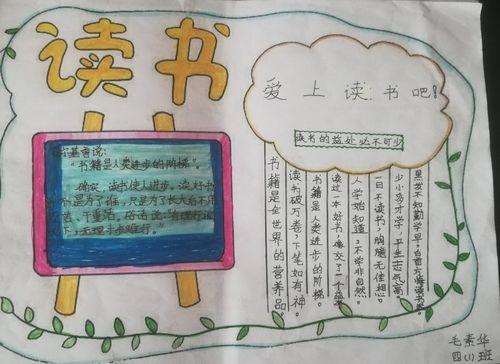 读书
爱上读书吧!
读书的益处必不可少
尔基曾说:
“书籍是人类进步的阶梯”。
确实,读书使人进步。读好书
不是为了谁,只是为了长大后不用
干重活。俗话说:“有理行遍
下,无理寸步难行。”
黑发不知勤学早,白首方悔读书迟。
少小多才学,平生志气高
一日不读书,胸臆无佳想。
人学始知道,不学非自然。
读过一本好书,像交了一个益友
书籍是人类进步的阶梯。
读书破万卷,下笔如有神。
书籍是全世界的营养品。
毛素华
四(1)班